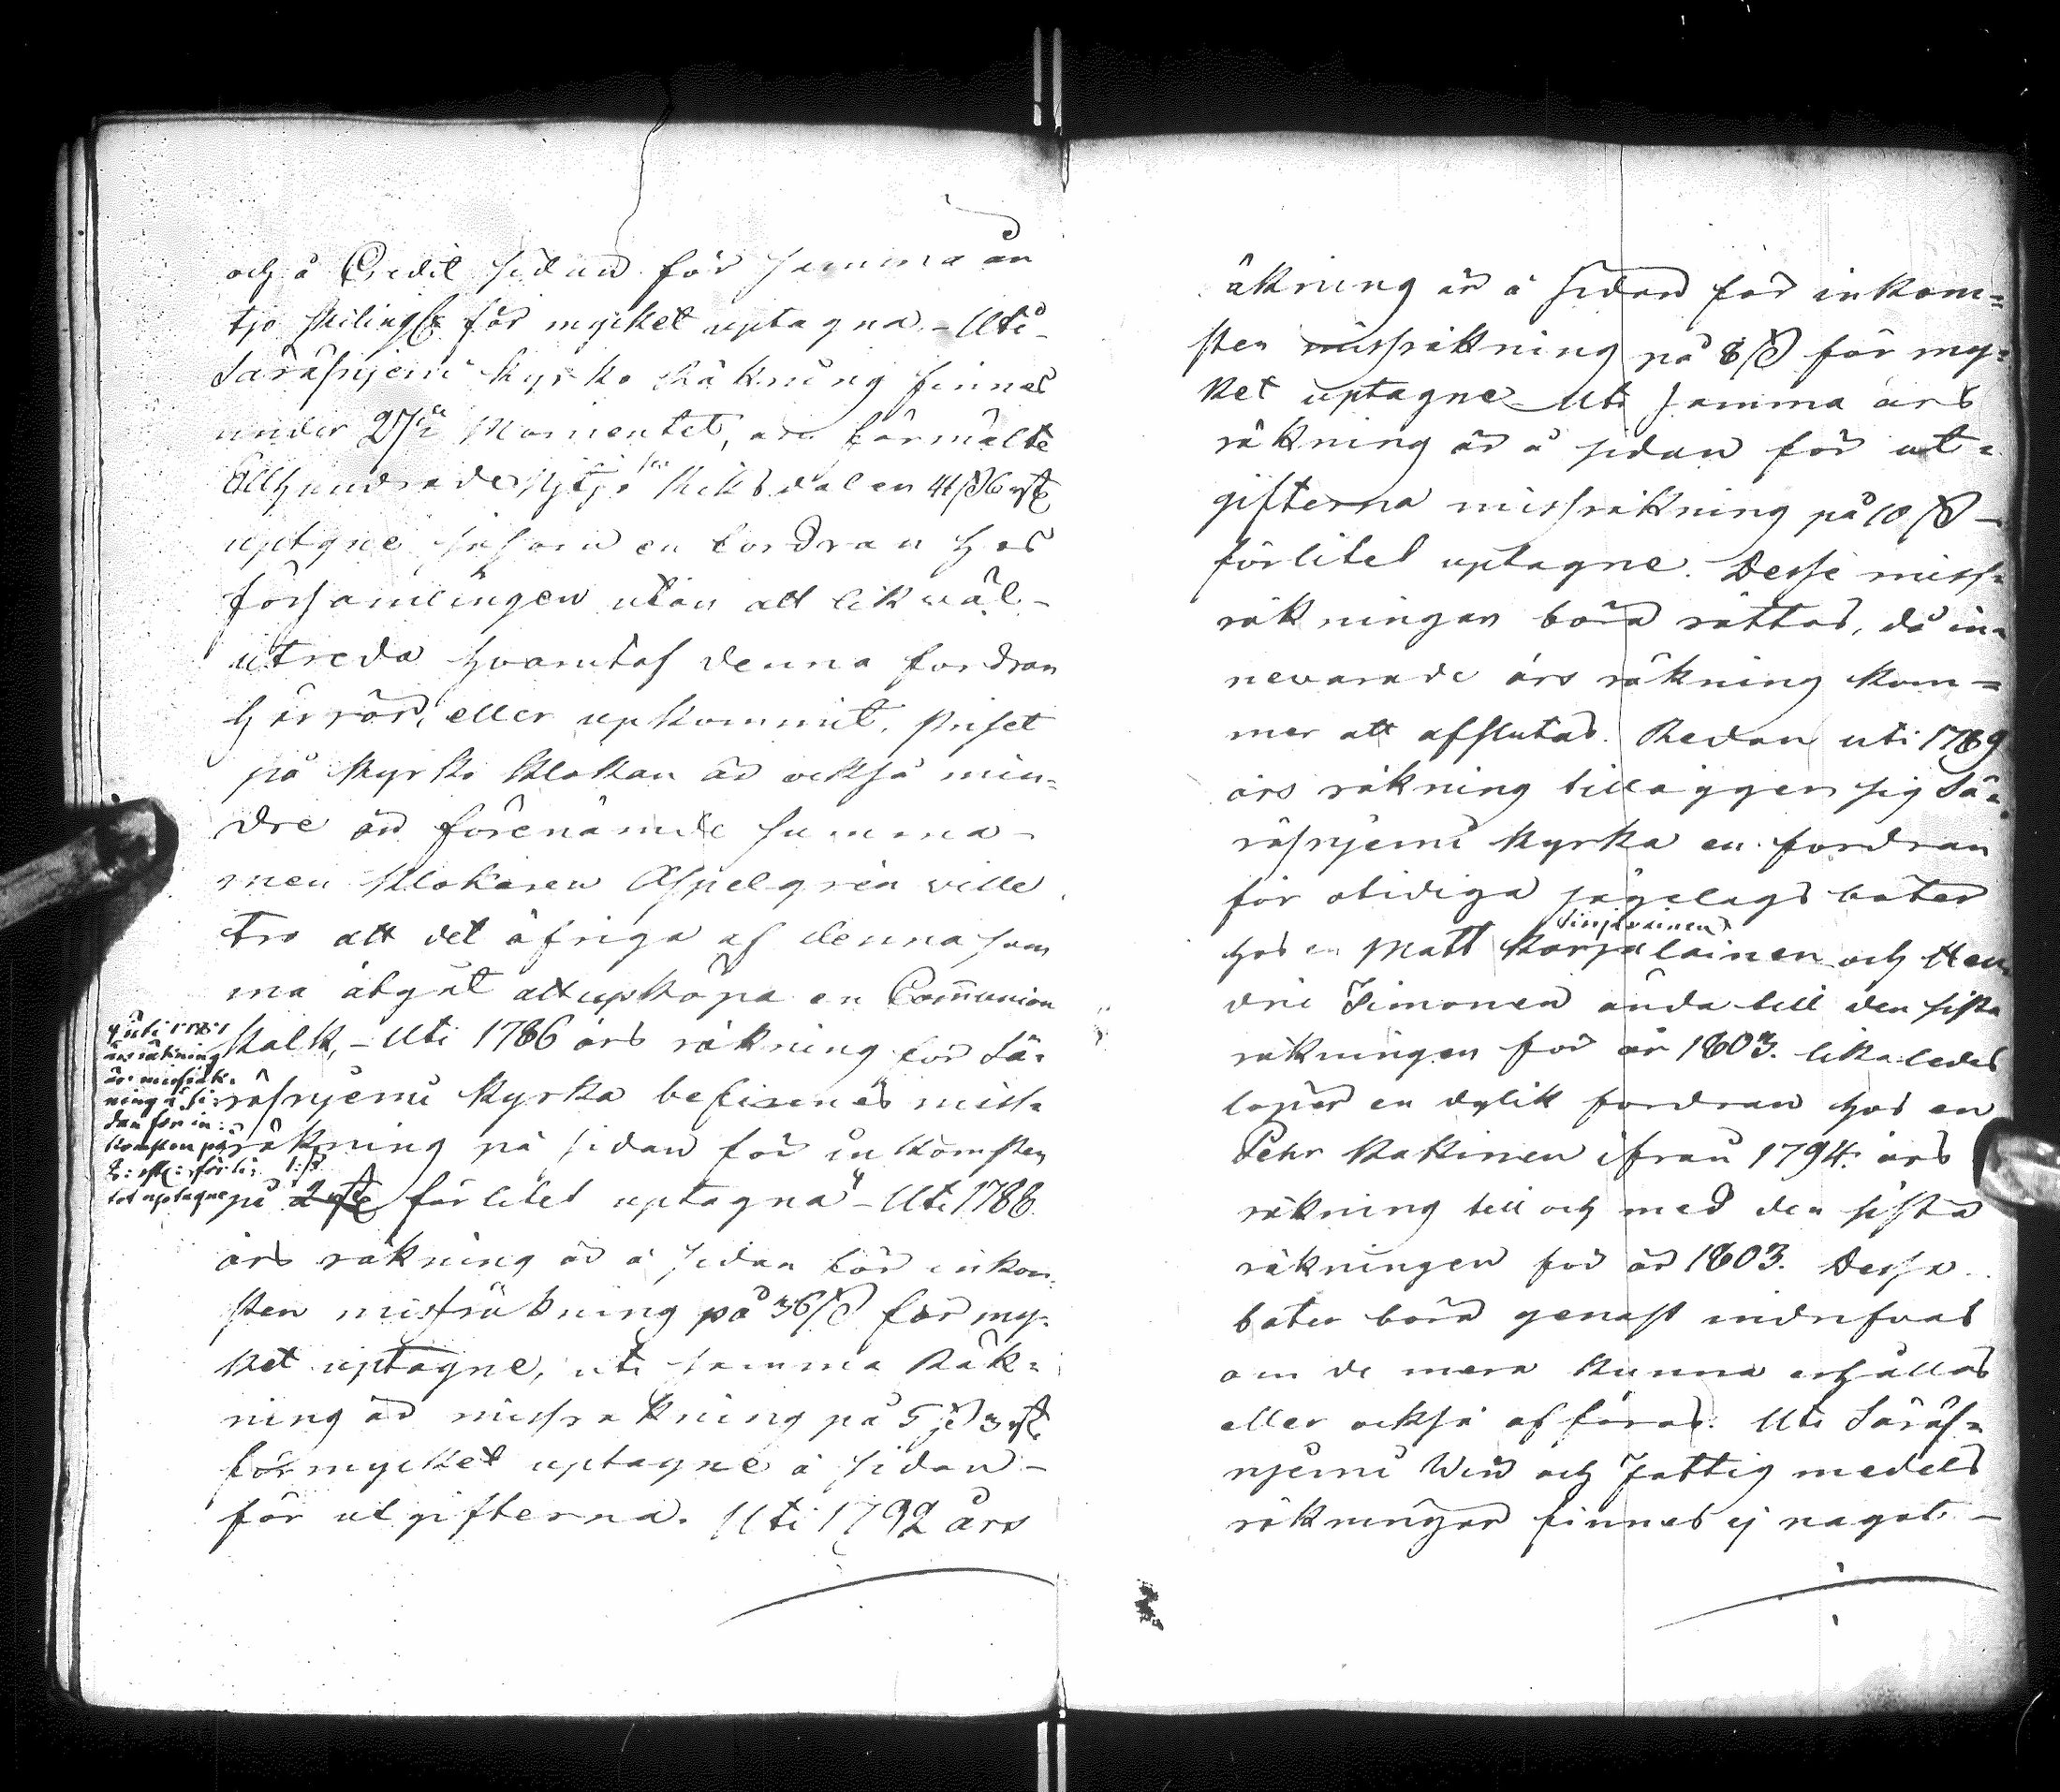 och å Credit sidan för samma år
tjo skiling för mycket uptagna. - Uti
Säräisnjemi kyrko Räkning finnes
under 27de Momentet, are förmälte
Etthundrade sjtjo sex Riksdaler 41 ß 6
uptagne såsom en fordran hos
församlingen utan att likwäl -
utreda hvarutaf denna fordran
härrör, eller upkommit. Priset
på kyrko klokan är också min=
dre än förenämde summa -
men Klokaren Aspelgren ville
tro att det öfriga af denna sum
ma åtgåt att upköpa en Communion
kalk, - Uti 1786 års räkning för Sä=
räsnjemi Kyrka befinnes miss=
räkning på sidan för inkomsten
på 2 1 ß förlitet uptagna" - Uti 1788
års räkning är å sidan för inkom=
sten missräkning på 36 ß för my=
ket uptagne, uti samma Räk=
ning är missräkning på 5 ß 3
för mycket uptagne å sidan -
för utgifterna. Uti 1792 års
års räkning
är missräk=
ning å si=
dan för in=
komsten på
8: för li=
tet uptagne
räkning är å sidan för inkom=
sten missräkning på 8 ß för my=
ket uptagne - Uti samma års
räkning är å sidan för ut=
gifterna missräkning på 10 ß -
förlitet uptagne. Desse miss=
räkningar böra rättas, då in=
nevarade års räkning kom=
mer att afslutas. Redan uti 1789
års räkning tillägger sig Sä=
räsnjemi kyrka en fordran
för otidiga sägelags böter
hos en Matt Karjalainen och Hen
dric Simonen ända till den sista
räkningen för år 1803. likaledes
löper en dylik fordran hos en
Pehr Kakinen ifrån 1794. års
räkning till och med den sista
räkningen för år 1803. Dessa
böter böra genast indrifvas
om de mera kunna erhållas
eller också afföras. Uti Säräs=
njemi Win och Fattig medels
räkningar finnes ej något -